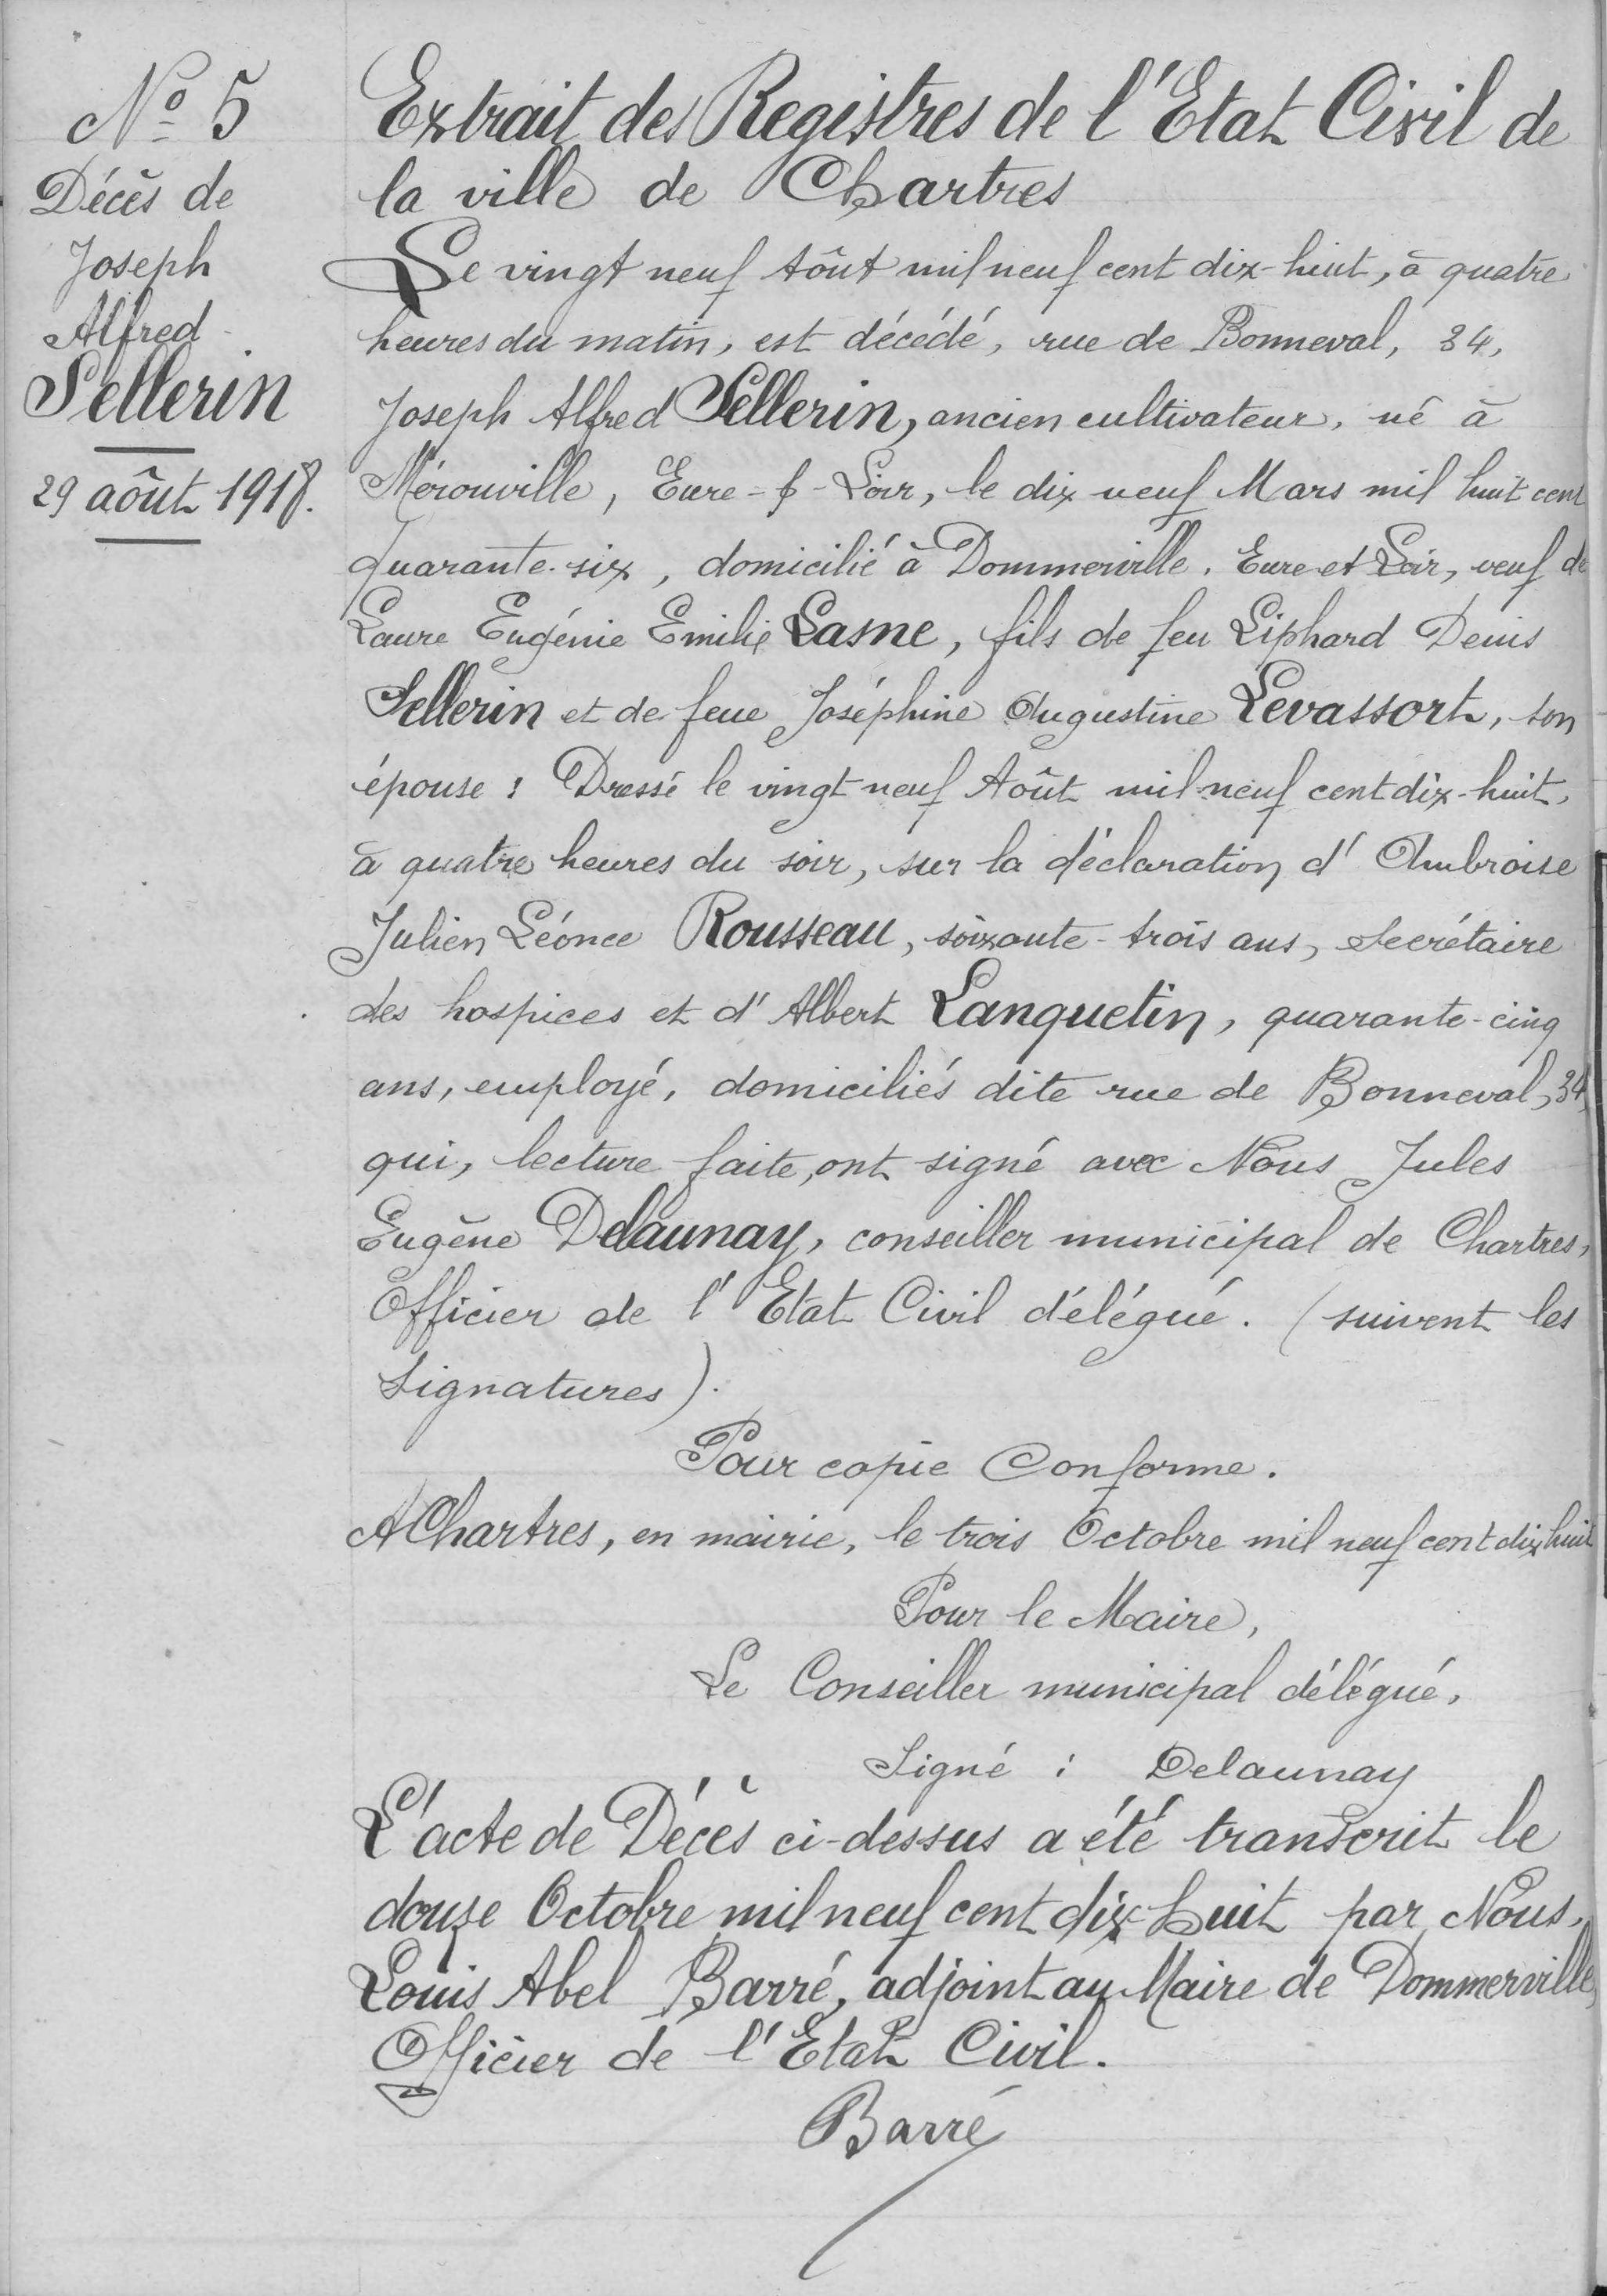 Nº 5
Décès de
Joseph
Alfred
Sellerin
29 août 1918.
Extrait des Registres de l'Etat Civil de
la ville de Chartres
Le vingt neuf Août mil neuf cent dix-huit, à quatre
heures du matin, est décédé, rue de Bonneval, 34,
Joseph Alfred Sellerin, ancien cultivateur, né à
Mérouville, Eure-&-Loir, le dix neuf Mars mil huit cent
quarante-six, domicilié à Dommerville, Eure et Loir, veuf de
Laure Eugénie Emilie Lasne, fils de feu Liphard Denis
Sellerin et de feue Joséphine Augustine Levassort, son
épouse : Dressé le vingt-neuf Août mil neuf cent dix-huit,
à quatre heures du soir, sur la déclaration d'Ambroise
Julien Léonce Rousseau, soixante-trois ans, secrétaire
des hospices et d'Albert Lanquetin, quarante-cinq
ans, employé, domiciliés dite rue de Bonneval, 34,
qui, lecture faite, ont signé avec Nous Jules
Eugène Delaunay, conseiller municipal de Chartres,
Officier de l'Etat Civil délégué. (suivent les
signatures).
Pour copie Conforme.
A Chartres, en mairie, le trois Octobre mil neuf cent dix huit
Pour le Maire,
Le Conseiller municipal délégué,
Signé : Delaunay
L'acte de Décès ci-dessus a été transcrit le
douze Octobre mil neuf cent dix-huit par Nous,
Louis Abel Barré, adjoint au Maire de Dommerville,
Officier de l'Etat Civil.
Barré